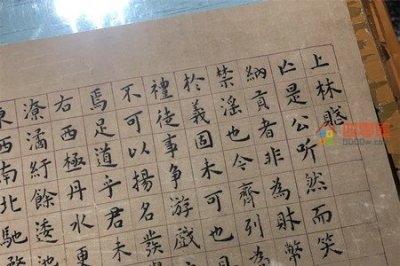 上林賦
亡是公听然而笑
納貢者非為財幣
禁淫也今齊列為
於義固未可也
禮徒事爭游戲
不可以揚名發
焉足道乎君未
右西極丹水更
潦潏紆餘逶
東西南北馳